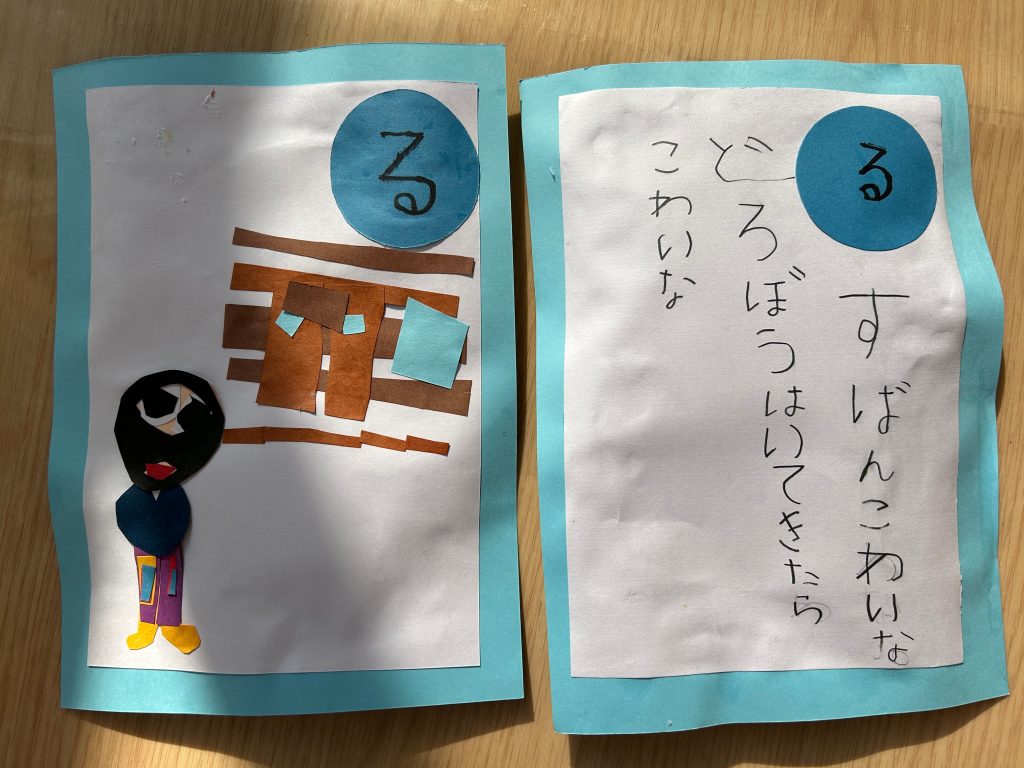 る
る
すばんこわいな
どろぼうはいてきたら
こわいな